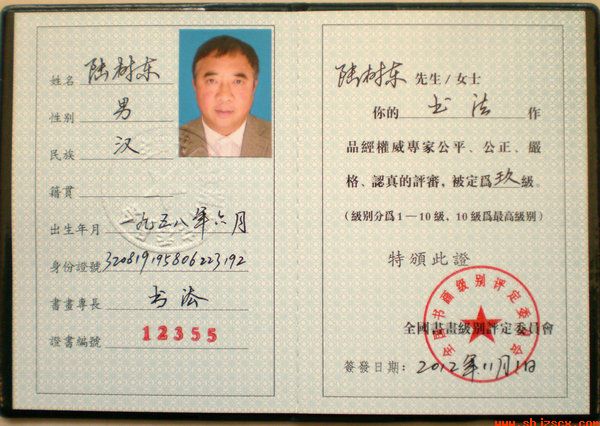 姓名 陆树东
性别 男
民族 汉
籍貫
出生年月 一九五八年六月
身份證號 320819195806223192
書畫專長 书法
證書編號 12355
陆树东 先生/女士
你的 书法 作
品經權威專家公平、公正、嚴
格、認真的評審，被定爲 玖 級。
（級别分爲1—10級，10級爲最高級别）
特頒此證
全國書畫級别評定委員會
簽發日期：2012年11月1日
全国书画级别评定委员会
www.shizscx.com